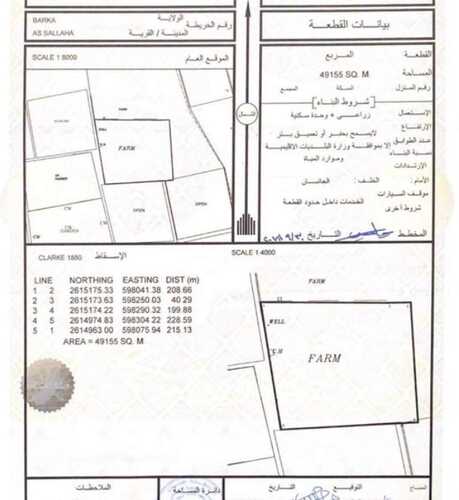 بيانات القطعة
القطعة: المربع
المساحة 49155 SQ. M
رقم المنزل السكة المجمع
شروط البناء
الاستعمال زراعي + وحدة سكنية
الإرتفاع
عدد الطوابق
نسبة البناء
الإرتدادات
لايسمح بحفر أو تعميق بئر
الا بموافقة وزارة البلديات الاقليمية
وموارد المياة
الأمام: الخلف: الجانبان
موقف السيارات
الخدمات داخل حدود القطعة
شروط أخرى
المخطط التاريخ
الشمال
BARKA الولاية
AS SALLAHA المدينة / القرية
رقم الخريطة
SCALE 1:5000 الموقع العام
FARM
OPEN
OPEN
CLARKE 1880 الإسقاط
LINE NORTHING EASTING DIST (m)
1 2 2615175.33 598041.38 208.66
2 3 2615173.63 598250.03 40.29
3 4 2615174.22 598290.32 199.88
4 5 2614974.83 598304.22 228.59
5 1 2614963.00 598075.94 215.13
AREA = 49155 SQ. M
SCALE 1:4000
FARM
WELL
FARM
الملاحظات
دائرة المساحة
التاريخ
التوقيع